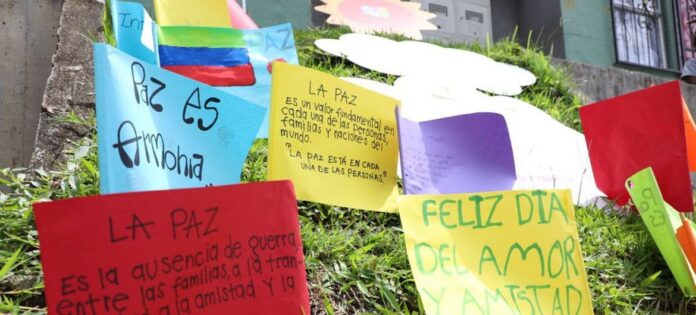 Paz es
Armonia
PAZ
LA PAZ
Es un valor fundamental en
cada una de las personas,
familias y naciones del
mundo.
"LA PAZ ESTÁ EN CADA
UNA DE LAS PERSONAS.
LA PAZ
Es la ausencia de guerra,
entre las familias, a la tran-
a la amistad y la
FELIZ DIA
DEL AMOR
Y AMISTAD